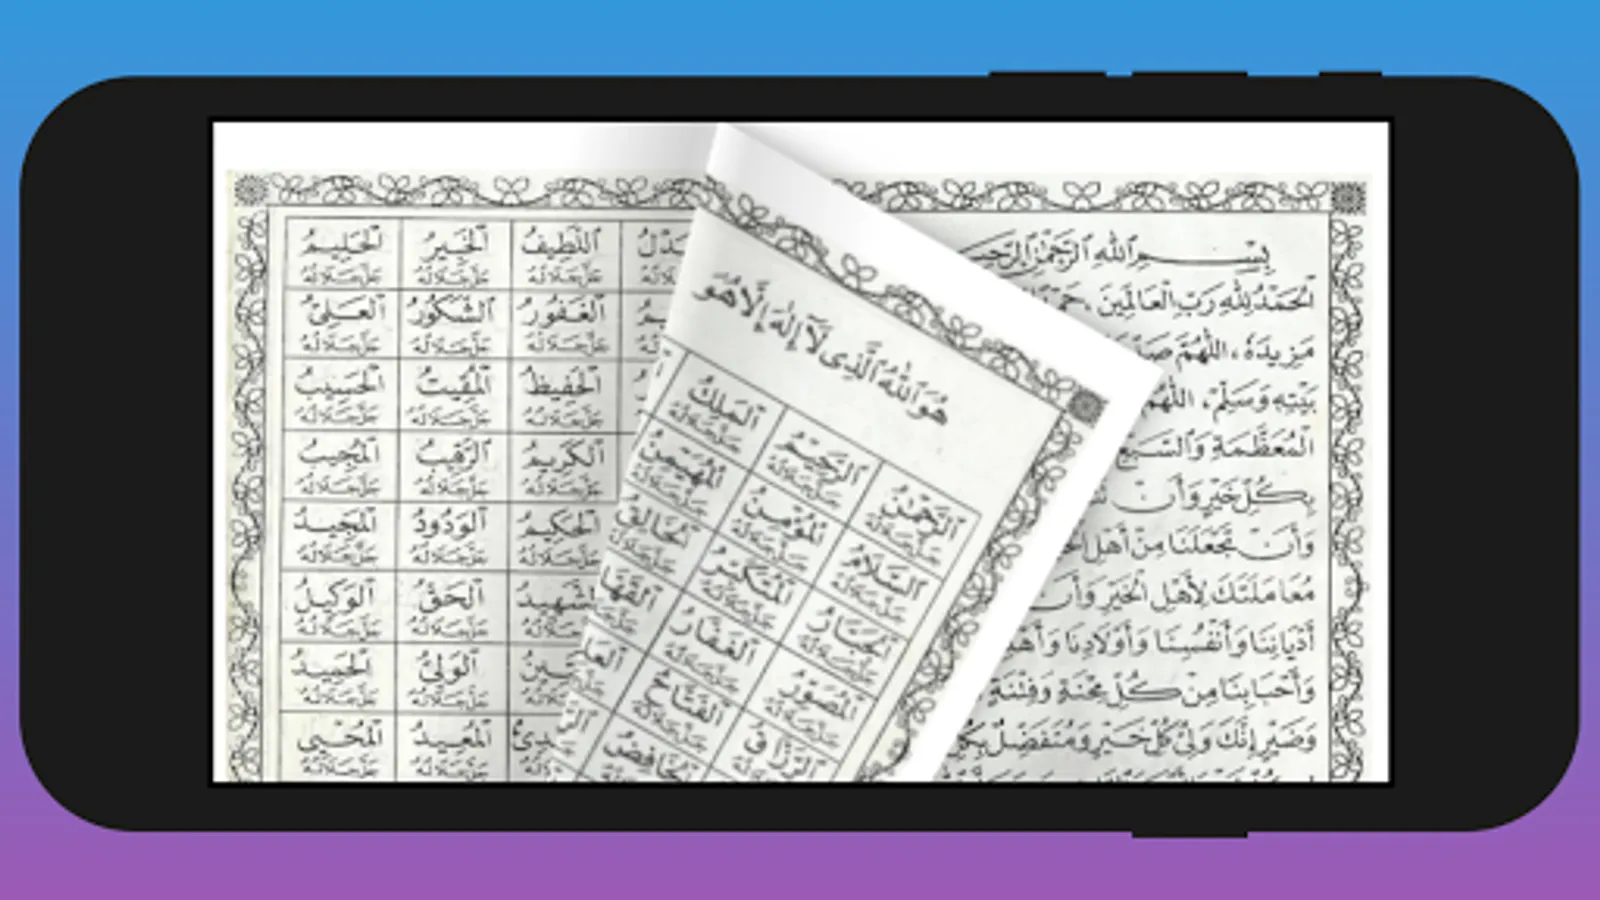 بِسْمِ ٱللَّهِ ٱلرَّحْمَٰنِ
ٱلْحَمْدُ لِلَّهِ رَبِّ ٱلْعَالَمِينَ ،
مَزِيدَهُ ، اللَّهُمَّ
بَيْتِهِ وَسَلِّمْ، اللَّهُمَّ
الْمُعَظَّمَةِ وَالسَّبْعِ
بِكُلِّ خَيْرٍ وَأَنْ
وَأَنْ تَجْعَلَنَا مِنْ أَهْلِ
مُعَامَلَتَكَ لِأَهْلِ الْخَيْرِ وَأَنْ
أَدْيَانِنَا وَأَنْفُسِنَا وَأَوْلَادِنَا
وَأَحْبَابِنَا مِنْ كُلِّ مِحْنَةٍ وَفِتْنَةٍ
وَضَيْرٍ إِنَّكَ وَلِيُّ كُلِّ خَيْرٍ وَمُتَفَضِّلٌ
هُوَ ٱللَّهُ ٱلَّذِى لَآ إِلَٰهَ إِلَّا هُوَ
ٱلرَّحْمَٰنُ جَلَّ جَلَالُهُ ٱلرَّحِيمُ جَلَّ جَلَالُهُ ٱلْمَلِكُ جَلَّ جَلَالُهُ
ٱلسَّلَامُ جَلَّ جَلَالُهُ ٱلْمُؤْمِنُ جَلَّ جَلَالُهُ ٱلْمُهَيْمِنُ جَلَّ جَلَالُهُ
ٱلْجَبَّارُ جَلَّ جَلَالُهُ ٱلْمُتَكَبِّرُ جَلَّ جَلَالُهُ
ٱلْمُصَوِّرُ جَلَّ جَلَالُهُ ٱلْغَفَّارُ جَلَّ جَلَالُهُ
ٱلرَّزَّاقُ ٱلْفَتَّاحُ جَلَّ جَلَالُهُ
ٱللَّطِيفُ جَلَّ جَلَالُهُ ٱلْخَبِيرُ جَلَّ جَلَالُهُ ٱلْحَلِيمُ جَلَّ جَلَالُهُ
ٱلْغَفُورُ جَلَّ جَلَالُهُ ٱلشَّكُورُ جَلَّ جَلَالُهُ ٱلْعَلِىُّ جَلَّ جَلَالُهُ
ٱلْحَفِيظُ جَلَّ جَلَالُهُ ٱلْمُقِيتُ جَلَّ جَلَالُهُ ٱلْحَسِيبُ جَلَّ جَلَالُهُ
ٱلْكَرِيمُ جَلَّ جَلَالُهُ ٱلرَّقِيبُ جَلَّ جَلَالُهُ ٱلْمُجِيبُ جَلَّ جَلَالُهُ
ٱلْحَكِيمُ جَلَّ جَلَالُهُ ٱلْوَدُودُ جَلَّ جَلَالُهُ ٱلْمَجِيدُ جَلَّ جَلَالُهُ
ٱلْحَقُّ جَلَّ جَلَالُهُ ٱلْوَكِيلُ جَلَّ جَلَالُهُ
ٱلْوَلِىُّ جَلَّ جَلَالُهُ ٱلْحَمِيدُ جَلَّ جَلَالُهُ
ٱلْمُعِيدُ جَلَّ جَلَالُهُ ٱلْمُحْيِى جَلَّ جَلَالُهُ